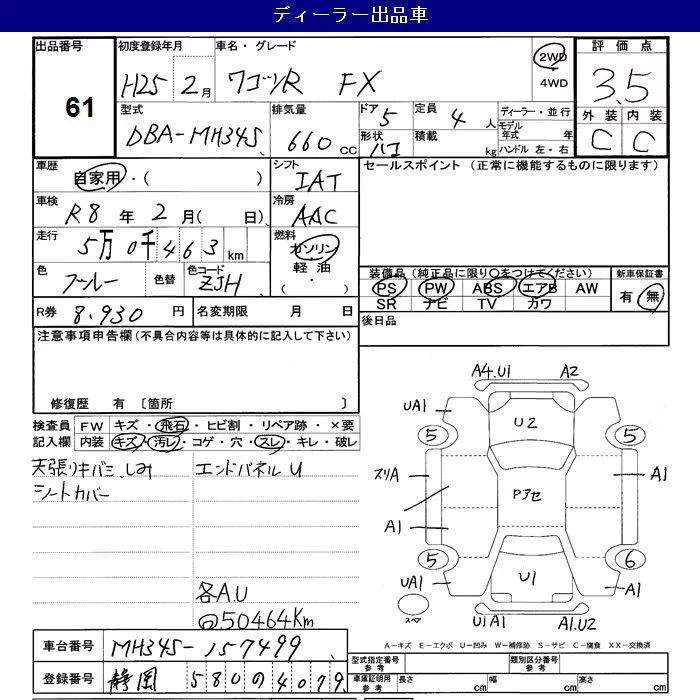 ディーラー出品車
出品番号
61
初度登録年月
H25 2月
車名・グレード
ワゴンR FX
2WD
4WD
評価点
3.5
外装 内装
C C
型式
DBA-MH34S
排気量
660cc
ドア 5
形状 ハコ
定員 4人
積載 kg
ディーラー・並行
モデル年式 年
ハンドル 左・右
車歴
自家用・( )
シフト
IAT
セールスポイント (正常に機能するものに限ります)
車検
R8年2月( 日)
冷房
AAC
走行
5万0千463km
燃料
ガソリン
軽油
・( )
色
ブルー
色替
色コード
ZJH
装備品(純正品に限り○をつけてください)
PS PW ABS エアB AW
SR ナビ TV カワ
新車保証書
有・無
R券 8.930円
名変期限 月 日
後日品
注意事項申告欄(不具合内容等は具体的に記入して下さい)
修復歴 有 〔箇所 〕
検査員記入欄
FW キズ・飛石・ヒビ割・リペア跡・×要
内装 キズ・汚レ・コゲ・穴・スレ・キレ・破レ
天張りキバミ、しみ
シートカバー
エンドパネルU
各A.U
@50464Km
A4.U1 A2
UA1
U2
5 5
スリA
Pアセ
A1
A1
5 6
UA1
U1
A1
スペア
U1A1 A1.U2
A-キズ E-エクボ U-凹み W-補修跡 S-サビ C-腐食 XX-交換済
車台番号 MH34S-157499
登録番号 静岡 580 の 4079
型式指定番号 参考
類別区分番号 参考
車庫証明用 参考
長さ cm
幅 cm
高さ cm